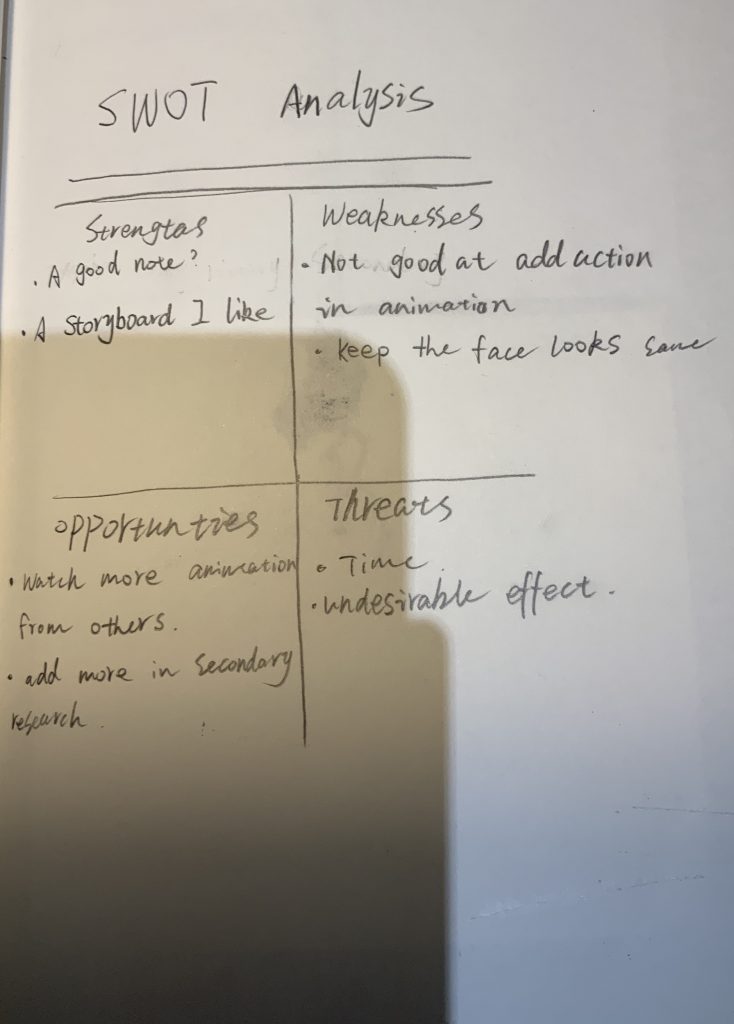 SWOT Analysis
Strengtas
· A good note?
· A Storyboard I like
Weaknesses
· Not good at add action
in animation
· Keep the face looks same
Opportunties
· Watch more animation
from others.
· add more in Secondary
research.
Threats
· Time.
· undesirable effect.